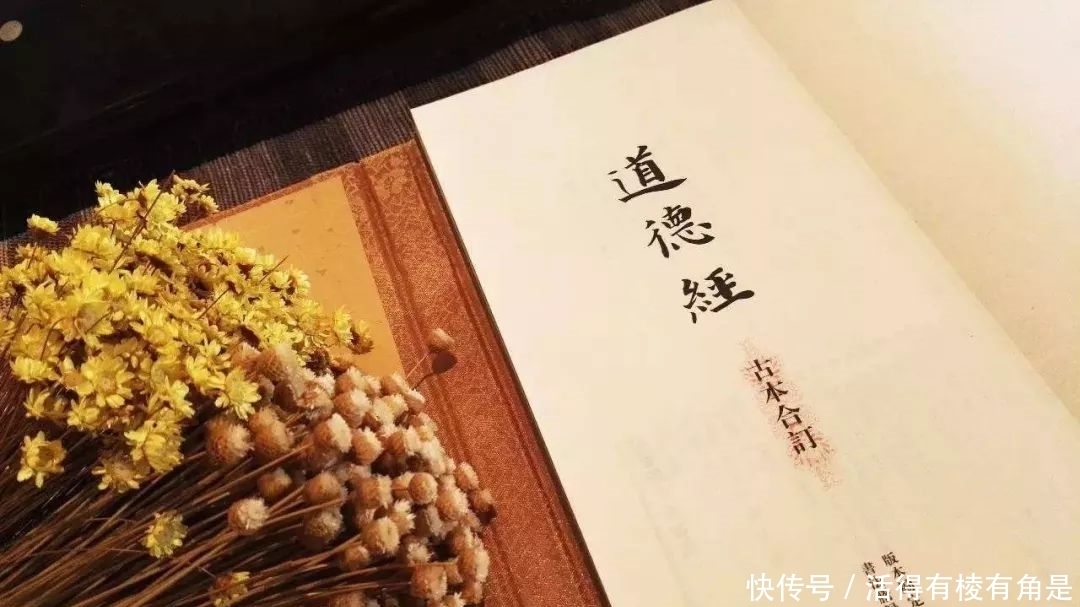 道德經
古本合訂
版本
書
快传号 / 活得有棱有角是